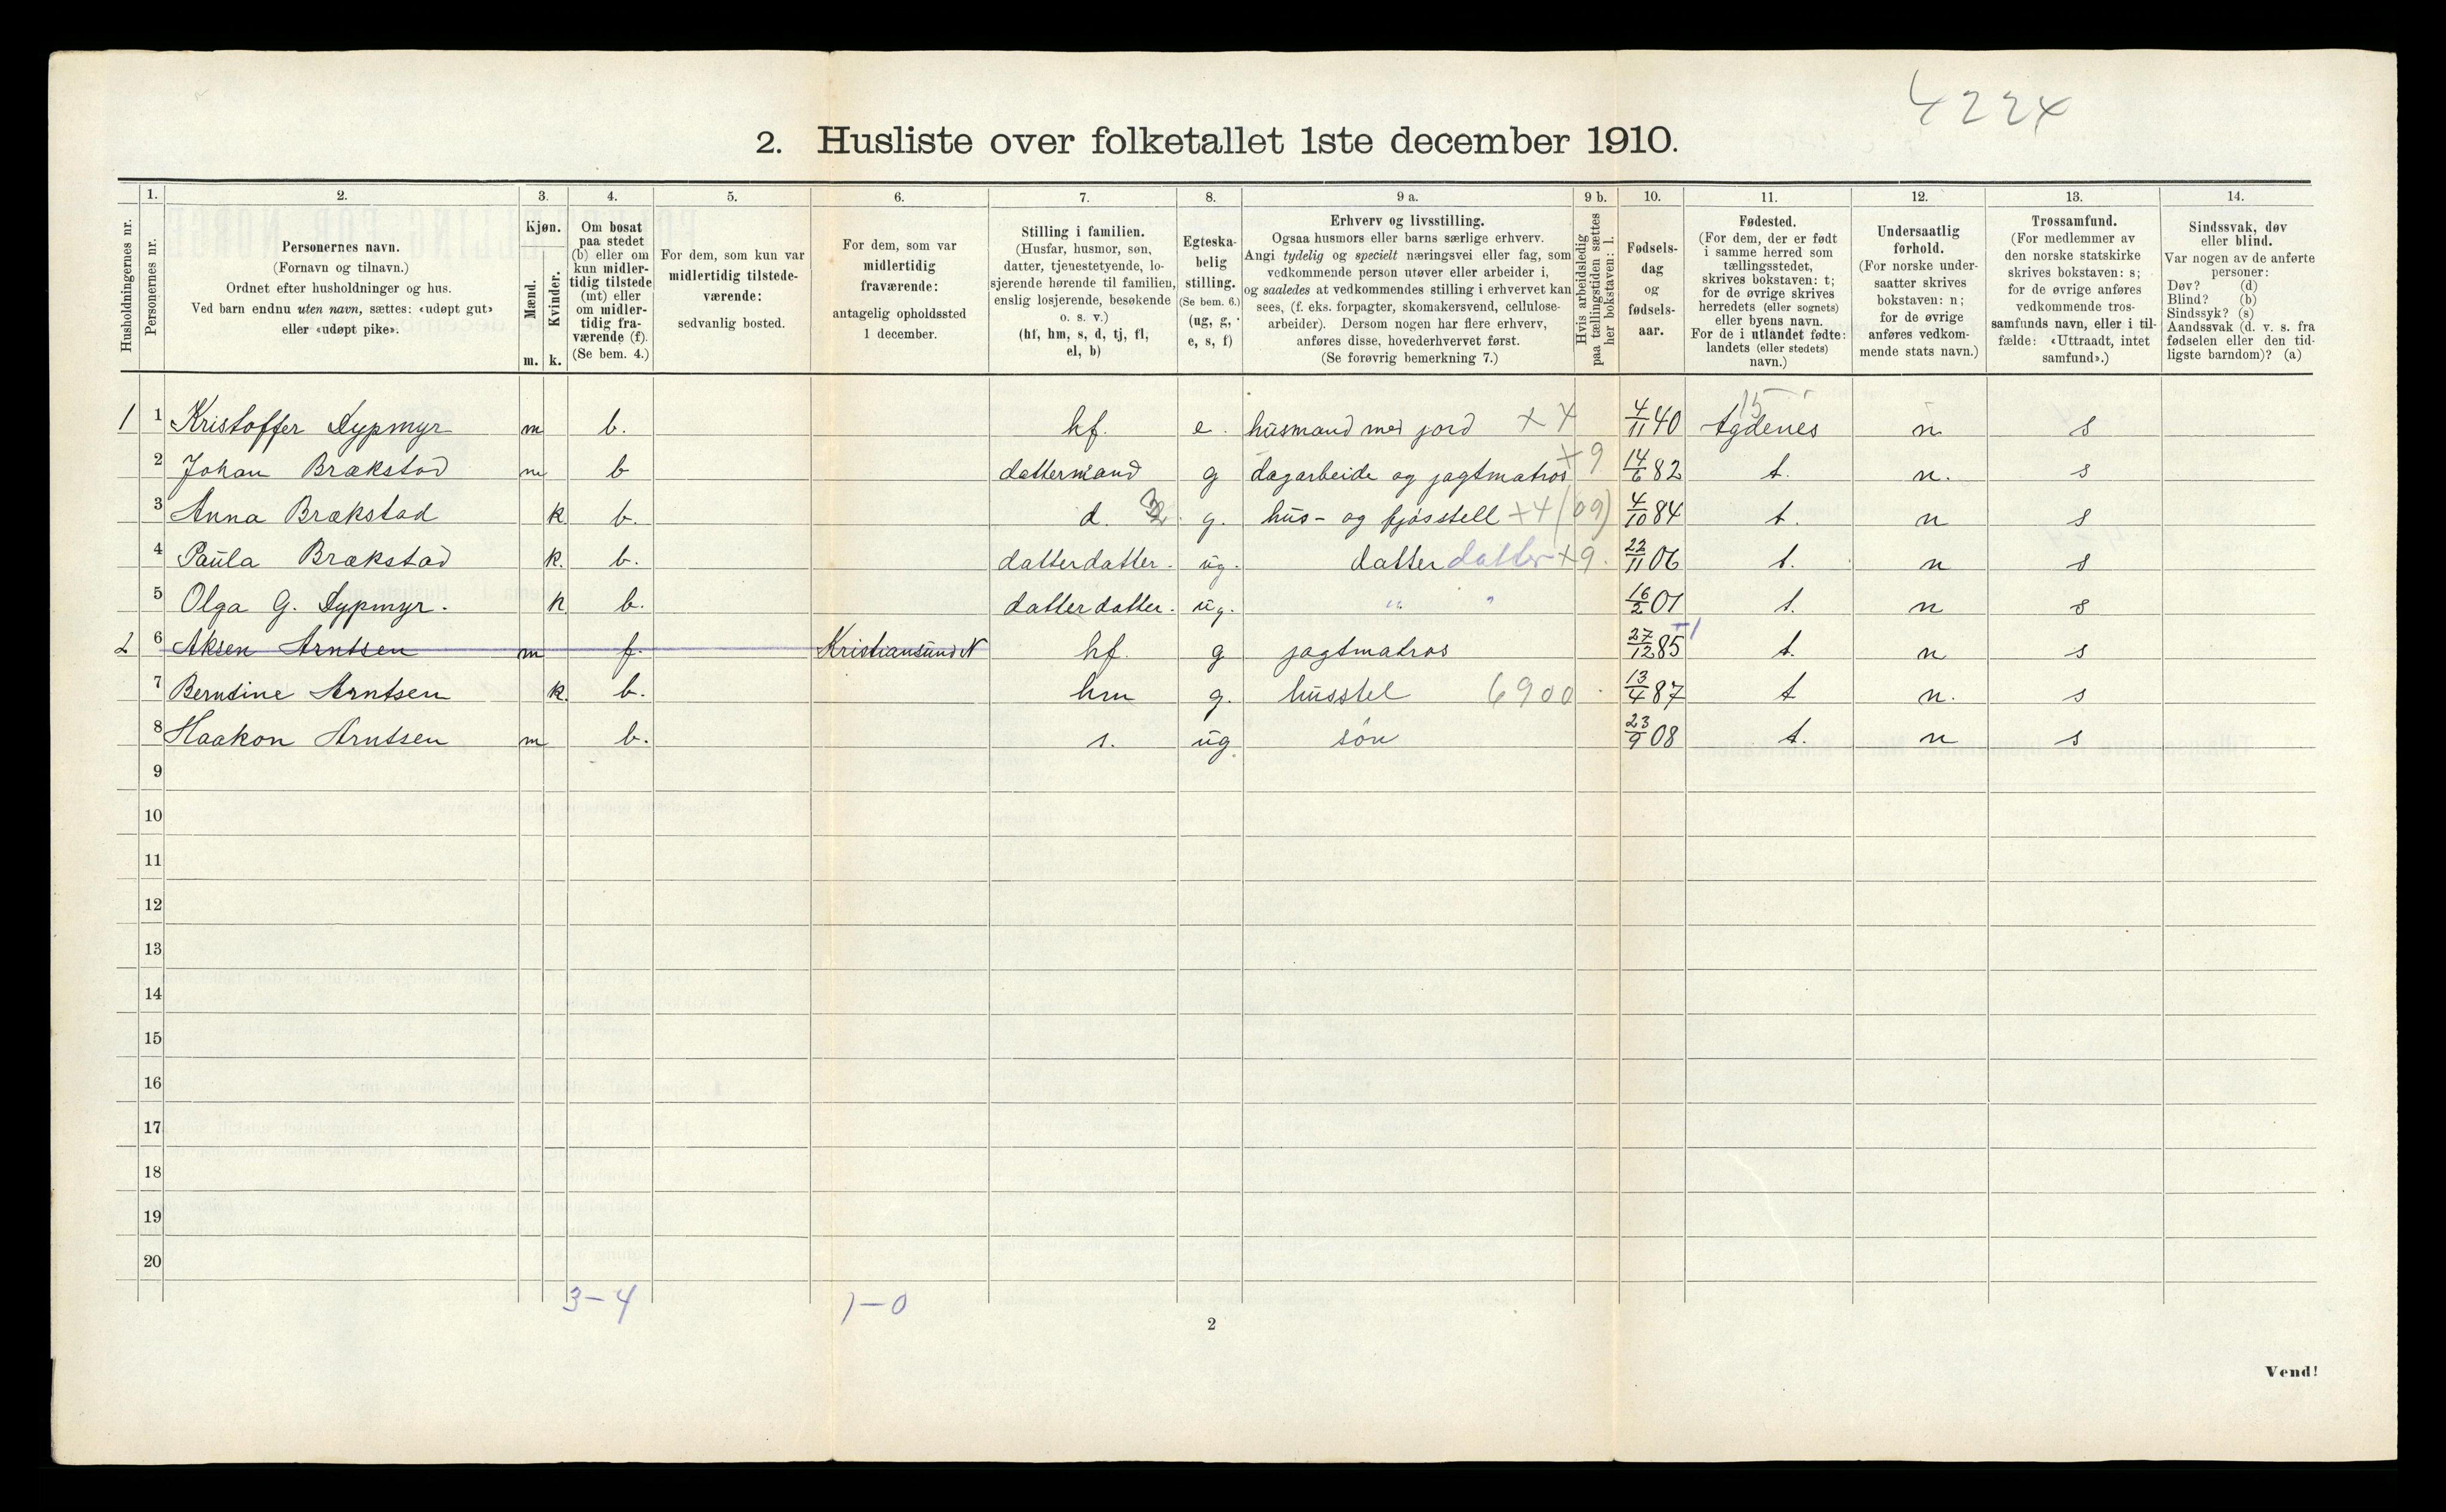 4224
2. Husliste over folketallet 1ste december 1910.
Husholdningernes nr.
1. Personernes nr.
2. Personernes navn. (Fornavn og tilnavn.) Ordnet efter husholdninger og hus. Ved barn endnu uten navn, sættes: «udøpt gut» eller «udøpt pike».
3. Kjøn. Mænd. m. Kvinder. k.
4. Om bosat paa stedet (b) eller om kun midlertidig tilstede (mt) eller om midlertidig fraværende (f). (Se bem. 4.)
5. For dem, som kun var midlertidig tilstedeværende: sedvanlig bosted.
6. For dem, som var midlertidig fraværende: antagelig opholdssted 1 december.
7. Stilling i familien. (Husfar, husmor, søn, datter, tjenestetyende, losjerende hørende til familien, enslig losjerende, besøkende o. s. v.) (hf, hm, s, d, tj, fl, el, b)
8. Egteskabelig stilling. (Se bem. 6.) (ug, g, e, s, f)
9 a. Erhverv og livsstilling. Ogsaa husmors eller barns særlige erhverv. Angi tydelig og specielt næringsvei eller fag, som vedkommende person utøver eller arbeider i, og saaledes at vedkommendes stilling i erhvervet kan sees, (f. eks. forpagter, skomakersvend, cellulosearbeider). Dersom nogen har flere erhverv, anføres disse, hovederhvervet først. (Se forøvrig bemerkning 7.)
9 b. Hvis arbeidsledig paa tællingstiden sættes her bokstaven: l.
10. Fødselsdag og fødselsaar.
11. Fødested. (For dem, der er født i samme herred som tællingsstedet, skrives bokstaven: t; for de øvrige skrives herredets (eller sognets) eller byens navn. For de i utlandet fødte: landets (eller stedets) navn.)
12. Undersaatlig forhold. (For norske undersaatter skrives bokstaven: n; for de øvrige anføres vedkommende stats navn.)
13. Trossamfund. (For medlemmer av den norske statskirke skrives bokstaven: s; for de øvrige anføres vedkommende trossamfunds navn, eller i tilfælde: «Uttraadt, intet samfund».)
14. Sindssvak, døv eller blind. Var nogen av de anførte personer: Døv? (d) Blind? (b) Sindssyk? (s) Aandssvak (d. v. s. fra fødselen eller den tidligste barndom)? (a)
1 1 Kristoffer Dypmyr m b. hf. e. husmand med jord + 4 4/11 40 Agdenes 15 n s
2 Johan Brækstad m b dattermand g dagarbeide og jagtmatros + 9 14/6 82 t. n. s
3 Anna Brækstad k b. d. g. hus- og fjøsstell +4 (09) 4/10 84 t. n s
4 Paula Brækstad k. b. datterdatter. ug. datter datter +9. 22/11 06 t. n s
5 Olga G. Dypmyr. k b. datterdatter. ug. " " 16/2 01 t. n s
2 6 Aksen Arntsen m f. Kristiansund N hf. g jagtmatros 27/12 85 t. n s
7 Berndine Arntsen k. b. hm g. husstel 6900 13/4 87 t n. s
8 Haakon Arntsen m b. s. ug. søn 23/9 08 t. n s
9
10
11
12
13
14
15
16
17
18
19
20
3-4 1-0
2
Vend!